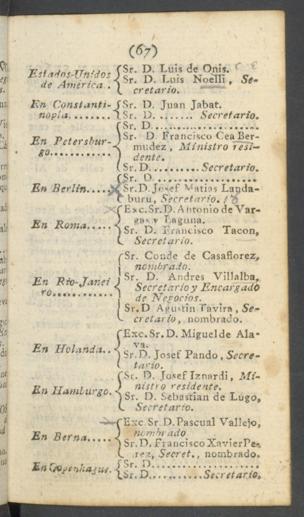 (67)
Estados-Unidos de América..
Sr. D. Luis de Onis.
Sr. D. Luis Noelli, Se-
cretario.
En Constanti-
nopla.........
Sr. D. Juan Jabat.
Sr. D. ....... Secretario.
En Petersbur-
go............
Sr. D....................
Sr. D. Francisco Cea Ber-
mudez, Ministro resi-
dente.
Sr. D.......... Secretario.
En Berlin.....
Sr. D. ..................
Sr. D. Josef Matias Landa-
buru, Secretario.
En Roma.....
Exc. Sr. D. Antonio de Var-
gas y Laguna.
Sr. D. Francisco Tacon,
Secretario.
En Rio-Janei
ro............
Sr. Conde de Casaflorez,
nombrado.
Sr. D. Andres Villalba,
Secretario y Encargado
de Negocios.
Sr. D Agustin Tavira, Se-
cretario, nombrado.
En Holanda..
Exc. Sr. D. Miguel de Ala-
va.
Sr. D. Josef Pando, Secre-
tario.
En Hamburgo.
Sr. D. Josef Iznardi, Mi-
nistro residente.
Sr. D. Sebastian de Lugo,
Secretario.
En Berna.....
Exc. Sr. D. Pascual Vallejo,
nombrado
Sr. D. Francisco Xavier Pe-
rez, Secret., nombrado.
En Copenhague.
Sr. D....................
Sr. D........... Secretario.